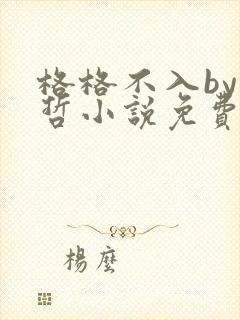 格格不入by
哲小說免費
楊塵